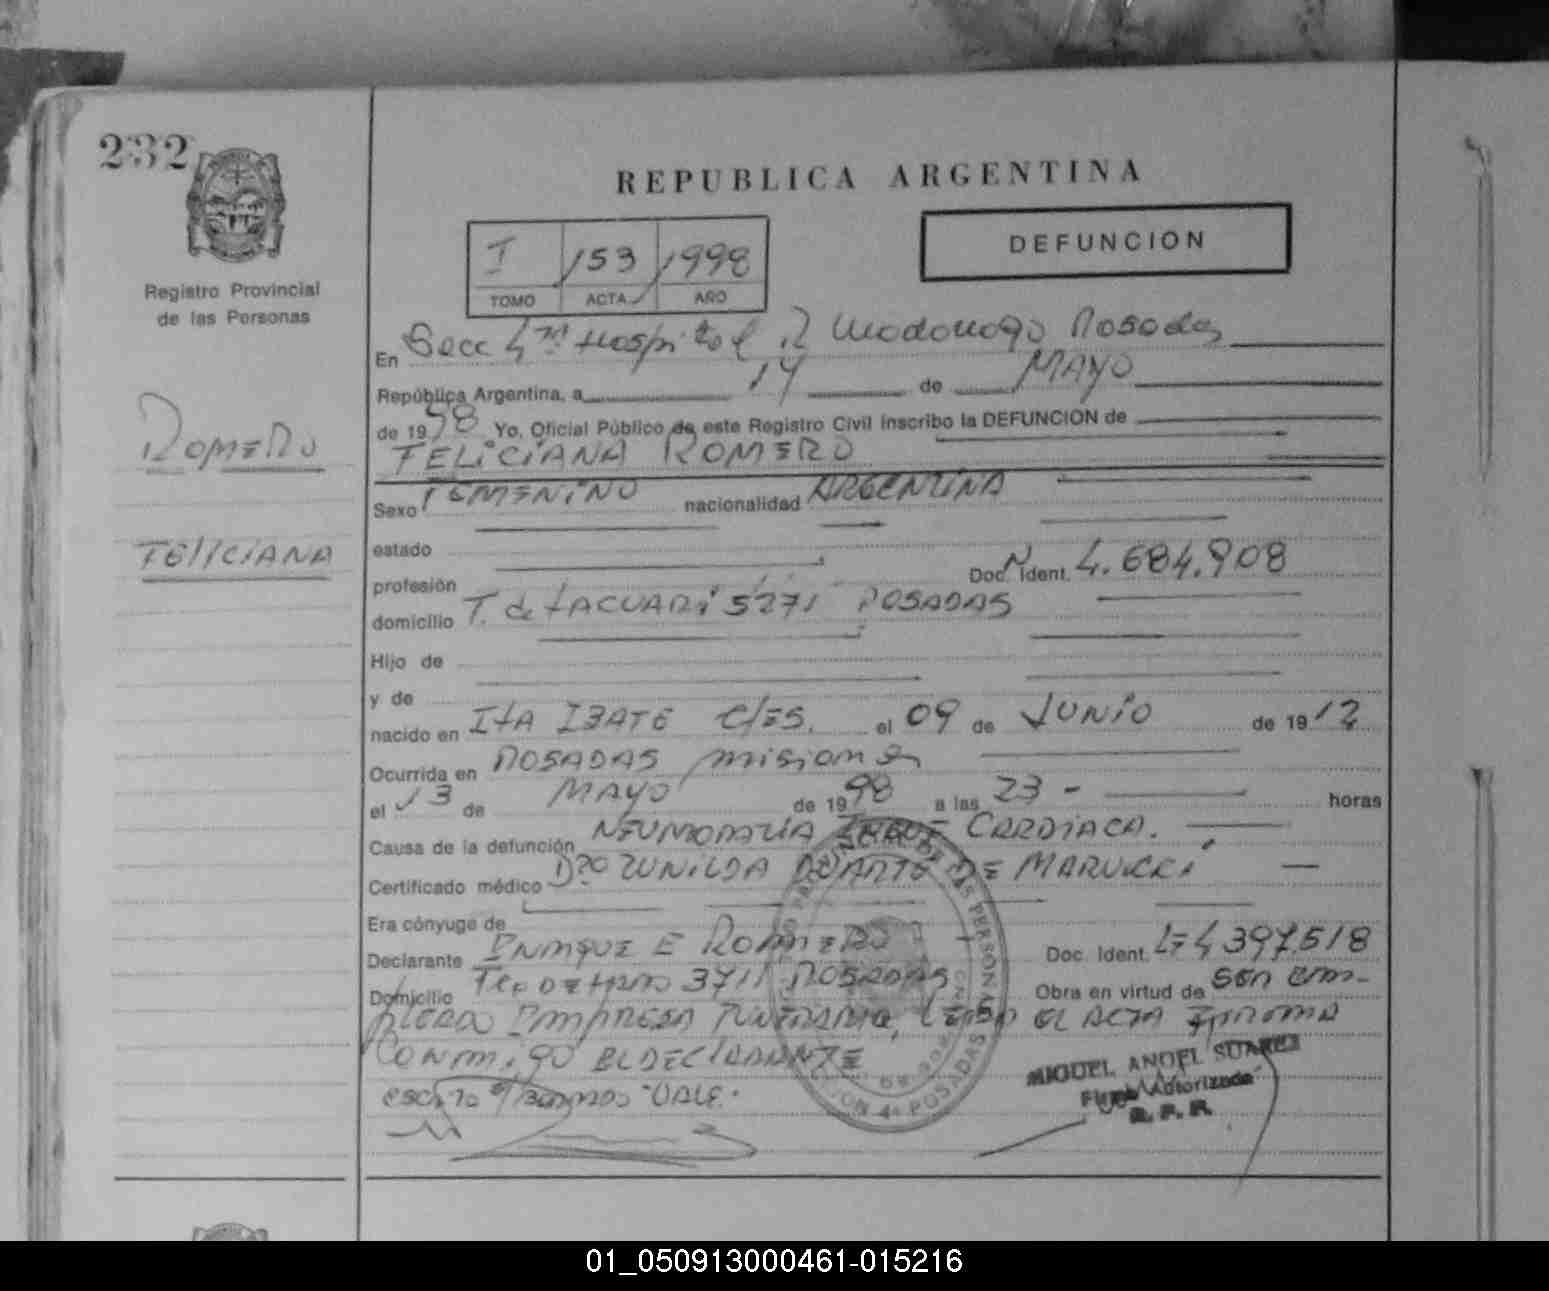 232
REPUBLICA ARGENTINA
DEFUNCION
I 153 1998
TOMO ACTA AÑO
Registro Provincial
de las Personas
ROMERO
FELICIANA
En Secc 4ta Hospital R Madariaga Posadas
República Argentina, a 14 de MAYO
de 1998 Yo, Oficial Público de este Registro Civil inscribo la DEFUNCION de
FELICIANA ROMERO
Sexo FEMENINO nacionalidad ARGENTINA
estado
profesión Doc. Ident. N 4.684.908
domicilio T. de TACUARI 5271 POSADAS
Hijo de
y de
nacido en ITA IBATE C/ES. el 09 de JUNIO de 1912
Ocurrida en POSADAS misiones
el 13 de MAYO de 1998 a las 23 - horas
Causa de la defunción NEUMOPATIA CARDIACA.
Certificado médico ZUNILDA DUARTE DE MARUCCI
Era cónyuge de
Declarante ENRIQUE E ROMERO Doc. Ident. LE 4397518
Domicilio 3711 POSADAS Obra en virtud de SER EM-
PRESA FUNERARIA, LEIDA EL ACTA FIRMA
CONMIGO EL DECLARANTE
escrito "VALE".
REGISTRO PROVINCIAL DE LAS PERSONAS
SECCION 4ª POSADAS
MIGUEL ANGEL SUAREZ
Firma Autorizada
R. P. P.
01_050913000461-015216